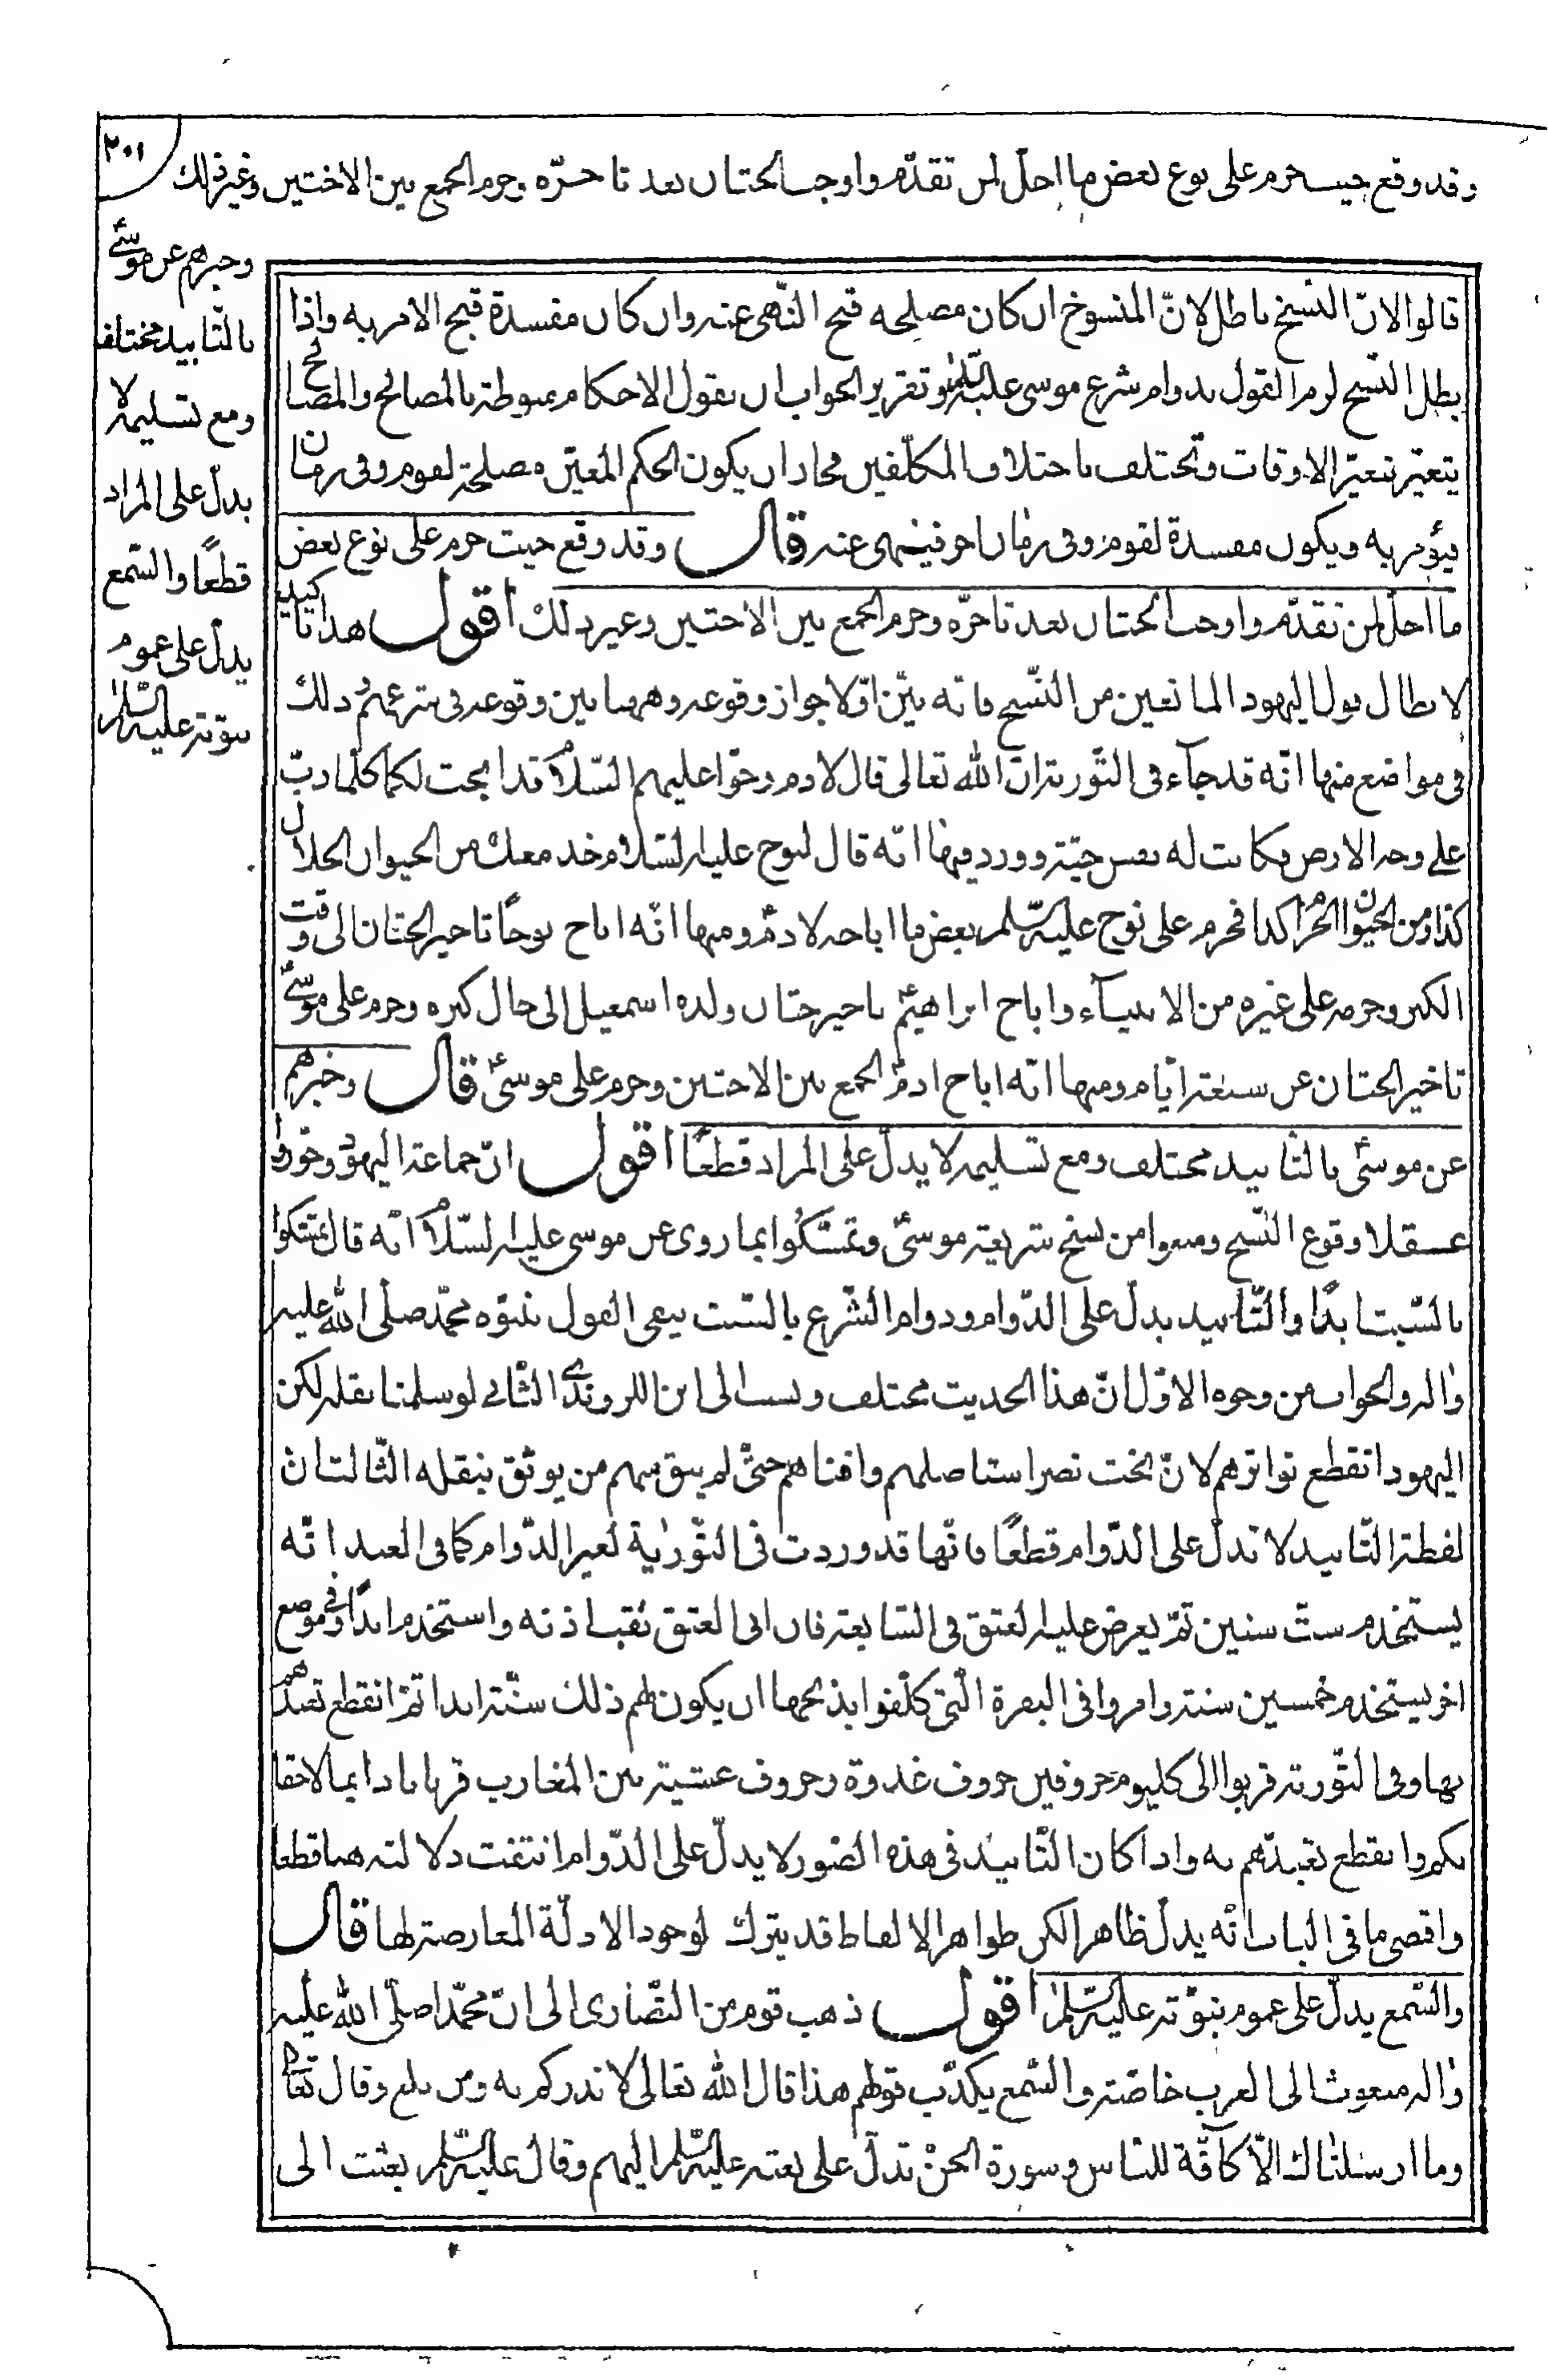 ٢٠١
وقد وقع حيث حرم على نوح بعض ما احلّ لمن تقدّم واوجب الختان بعد تاخرّه وحرم الجمع بين الاختين وغير ذلك
وخبرهم عن موسىٰ
بالتّابيد مختلف
ومع تسليمه لا
يدلّ على المراد
قطعًا والسّمع
يدلّ على عموم
نبوّته عليه السّلام
قالوا لانّ النسخ باطل لانّ المنسوخ ان كان مصلحه قبح النّهى عنه وان كان مفسدة قبح الامر به واذا
بطل النّسخ لزم القول بدوام شرع موسى عليه السّلام وتقرير الجواب ان نقول الاحكام منوطة بالمصالح والمصالح
يتغيّر بتغيّر الاوقات وتختلف باختلاف المكلّفين فجاز ان يكون الحكم المعيّن مصلحة لقوم وفى زمان
فيؤمر به ويكون مفسدة لقوم وفى زمان اخر فينهى عنه قال وقد وقع حيث حرم على نوع بعض
ما احلّ لمن تقدّم واوجب الختان بعد تاخرّه وحرم الجمع بين الاختين وغير ذلك اقول هذا تاكيد
لابطال قول اليهود المانعين من النّسخ فانّه بيّن اوّلا جواز وقوعه وههنا بيّن وقوعه فى شرعهم وذلك
فى مواضع منها انّه قد جآء فى التّورية انّ الله تعالى قال لادم وحوّا عليهم السّلام قد ابحت لكما كلّما دبّ
على وجه الارض فكانت له نفس حيّة وورد فيها انّه قال لنوح عليه السّلام خذ معك من الحيوان الحلال
كذا ومن الحيوان الحرام كذا فحرم على نوح عليه السّلم بعض ما اباحه لادمؑ ومنها انّه اباح نوحًا تاخير الختان الى وقت
الكبر وحرمه على غيره من الانبيآء واباح ابراهيمؑ تاخير ختان ولده اسمعيل الى حال كبره وحرم على موسىؑ
تاخير الختان عن سبعة ايّام ومنها انّه اباح ادمؑ الجمع بين الاختين وحرم على موسىؑ قال وخبرهم
عن موسىؑ بالتّابيد مختلف ومع تسليمه لا يدلّ على المراد قطعًا اقول انّ جماعة اليهود جوّزوا
عقلا وقوع النّسخ ومنعوا من نسخ شريعة موسىؑ وتمسّكوا بما روى عن موسى عليه السّلام انّه قال تمسّكوا
بالسّبت ابدًا والتّابيد يدلّ على الدّوام ودوام الشّرع بالسّبت ينفى القول بنبوّه محمّد صلّى الله عليه
واله والجواب من وجوه الاوّل انّ هذا الحديث مختلف ونسب الى ابن الروندى الثّانى لو سلمنا نقله لكن
اليهود انقطع تواترهم لانّ بخت نصر استاصلهم وافناهم حتّى لم يبق منهم من يوثق بنقله الثّالث انّ
لفظة التّابيد لا تدلّ على الدّوام قطعًا فانّها قد وردت فى التّورٰية لغير الدّوام كما فى العبد انّه
يستخدم ستّ سنين ثمّ يعرض عليه العتق فى السّابعة فان ابى العتق ثقب اذنه واستخدم ابدًا وفى موضع
اخر يستخدم خمسين سنة وامروا فى البقرة الّتى كلّفوا بذبحها ان يكون لهم ذلك سنّة ابدا ثمّ انقطع تعبّدهم
بها وفى التّورية قربوا الى كل يوم خروفين خروف غدوة وخروف عشية بين المغارب قربانا دايما لاحقا
بكم وانقطع تعبّدهم به واذا كان التّابيد فى هذه الصّور لا يدلّ على الدّوام انتفت دلالته هنا قطعا
واقصى ما فى الباب انّه يدلّ ظاهرا لكن ظواهر الالفاظ قد يترك لوجود الادلّة المعارضة لها قال
والسّمع يدلّ على عموم نبوّته عليه السّلم اقول ذهب قوم من النّصارى الى انّ محمّدا صلّى الله عليه
واله مبعوث الى العرب خاصّة والسّمع يكذّب قولهم هذا قال الله تعالى لانذركم به ومن بلغ وقال تعالى
وما ارسلناك الّا كآفّة للنّاس وسورة الجنّ تدلّ على بعثه عليه السّلم اليهم وقال عليه السّلم بعثت الى